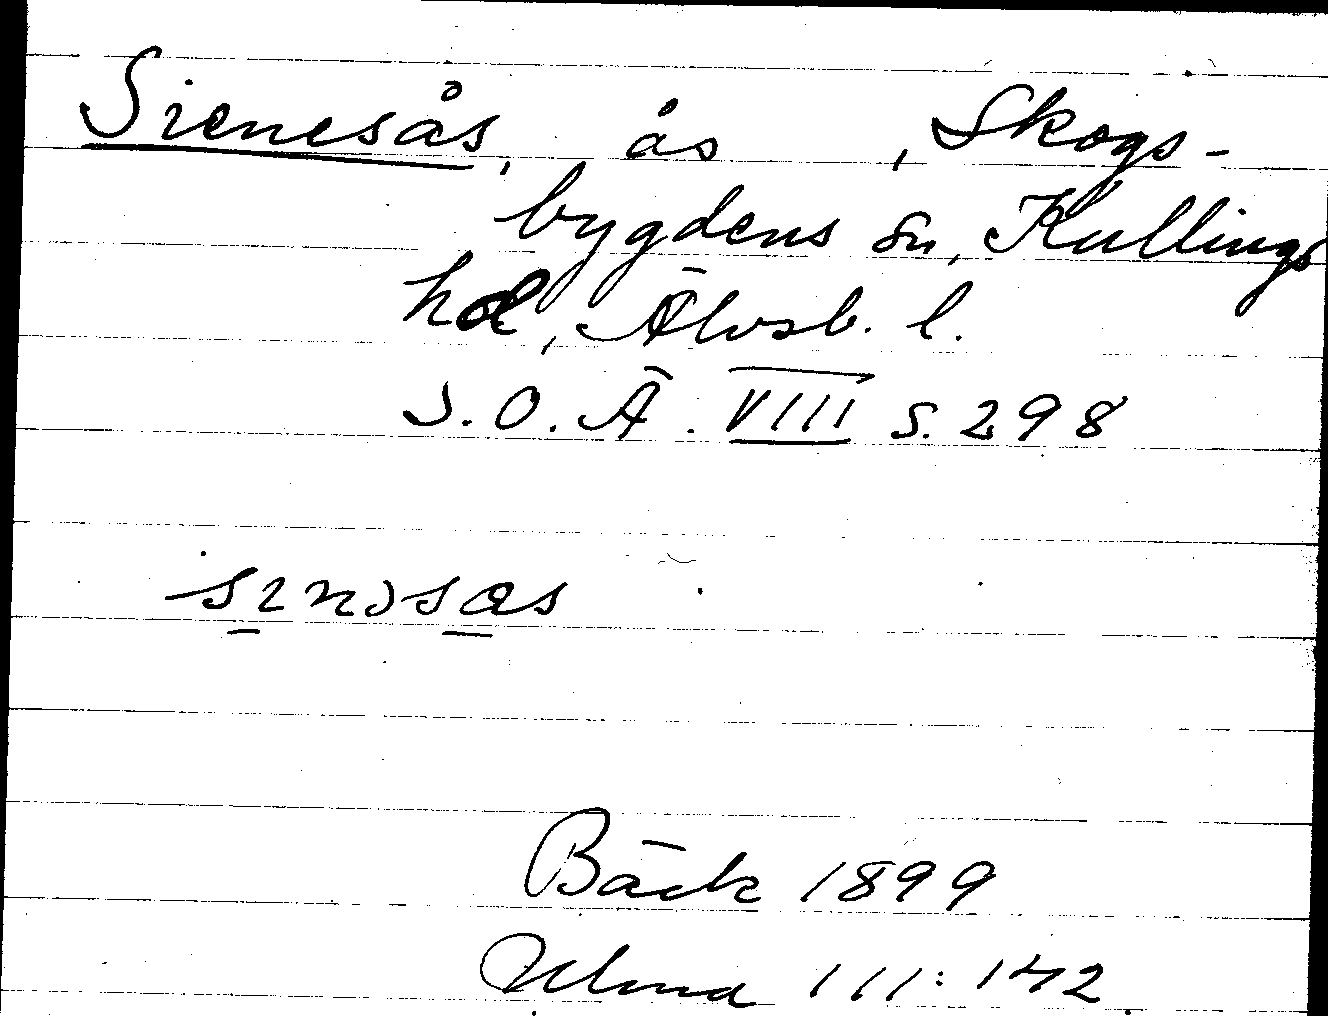 Sienesås, ås, Skogs-
bygdens sn, Kullings
hd, Älvsb. l.
S.O.Ä. VIII s. 298
Bäck 1899
Ulma 111:142